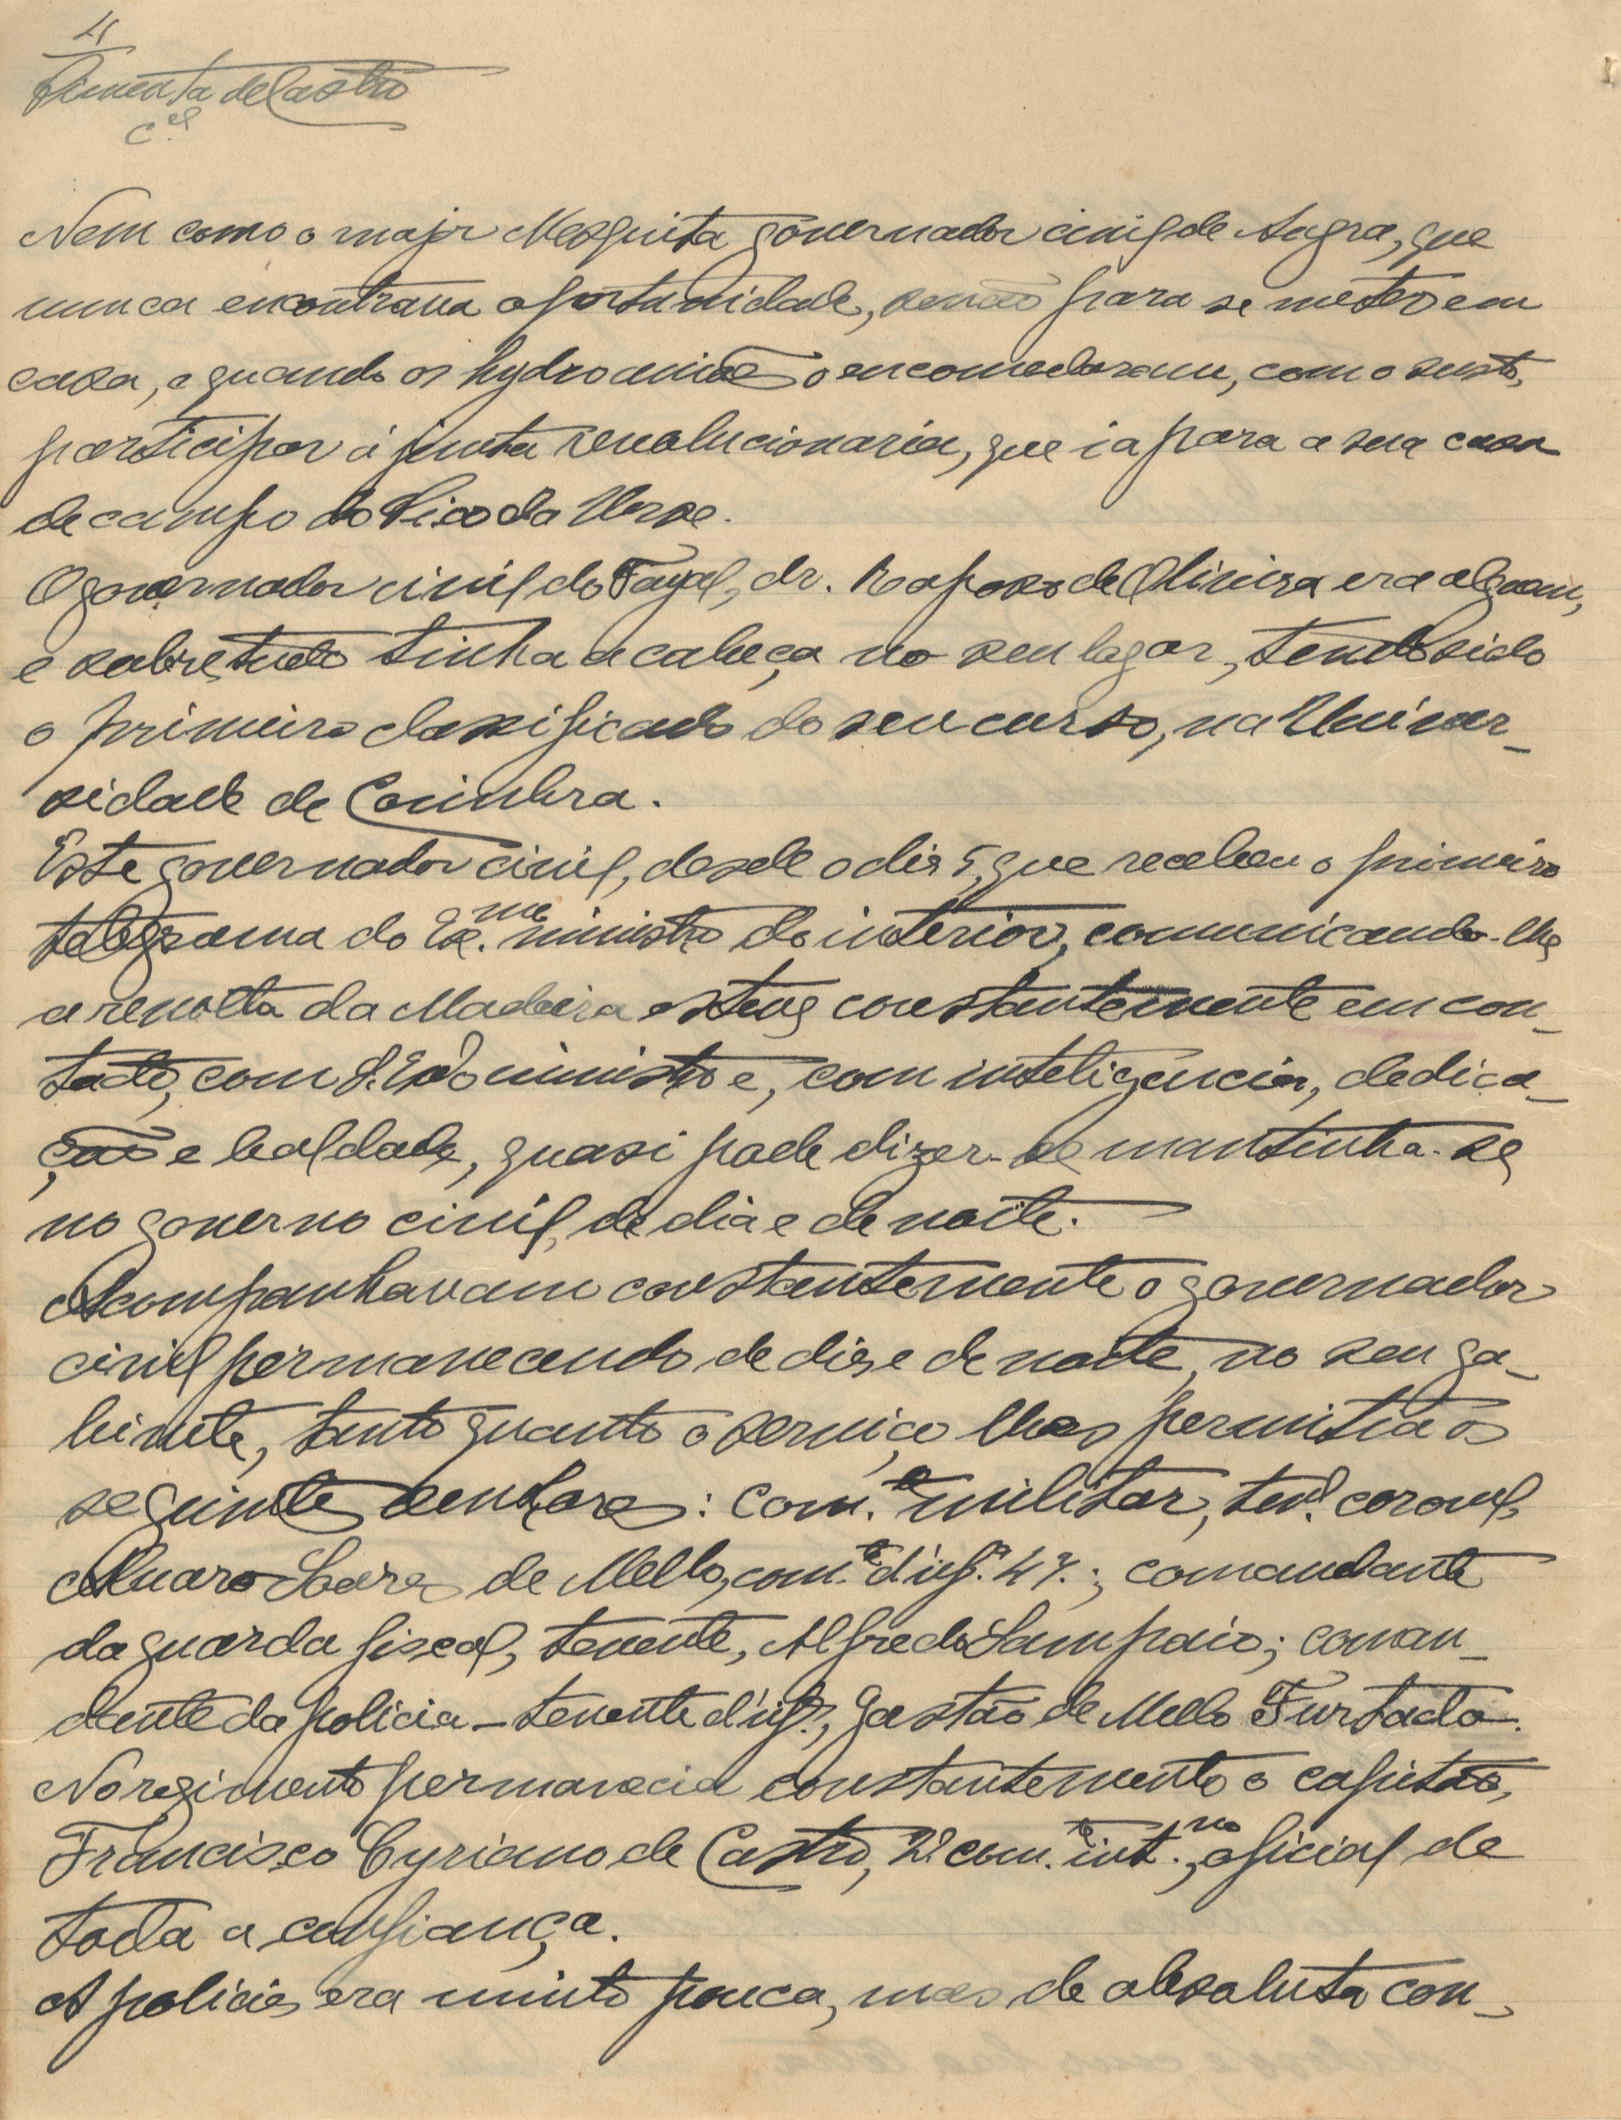 4
Pimenta de Castro
C.el
Nem como o major Mesquita governador civil de Angra, que
nunca encontrava oportunidade, senão para se meter em
casa, e quando os hydroaviões o encomodaram, com o susto,
participar á junta revolucionaria, que ia para a sua casa
de campo do Pico da Urze.
O governador civil do Fayal, dr. Raposo de Oliveira era alguem,
e sobretudo tinha a cabeça no seu logar, tendo sido
o primeiro classificado do seu curso, na Univer-
sidade de Coimbra.
Este governador civil, desde o dia 5, que recebeu o primeiro
telegrama do Ex.mo ministro do interior, comunicando-lhe
a revolta da Madeira esteve constantemente em con-
tacto, com S. Ex.ª o ministro e, com inteligencia, dedica-
ção e lealdade, quasi pode dizer-se mantinha-se
no governo civil, de dia e de noite.
Acompanhavam constantemente o governador
civil permanecendo de dia e de noite, no seu ga-
binete, tanto quanto o serviço lhes permitia os
seguintes senhores: Com.te militar, ten.te coronel,
Alvaro Soares de Mello, com.te d'inf.ª 47.; comandante
da guarda fiscal, tenente, Alfredo Sampaio; coman-
dante da policia - tenente d'inf.ª, Gastão de Mello Furtado.
No regimento permanecia constantemente o capitão,
Francisco Cyriano de Castro, 2º com.te int.no, oficial de
toda a confiança.
A policia era muito pouca, mas de absoluta con-